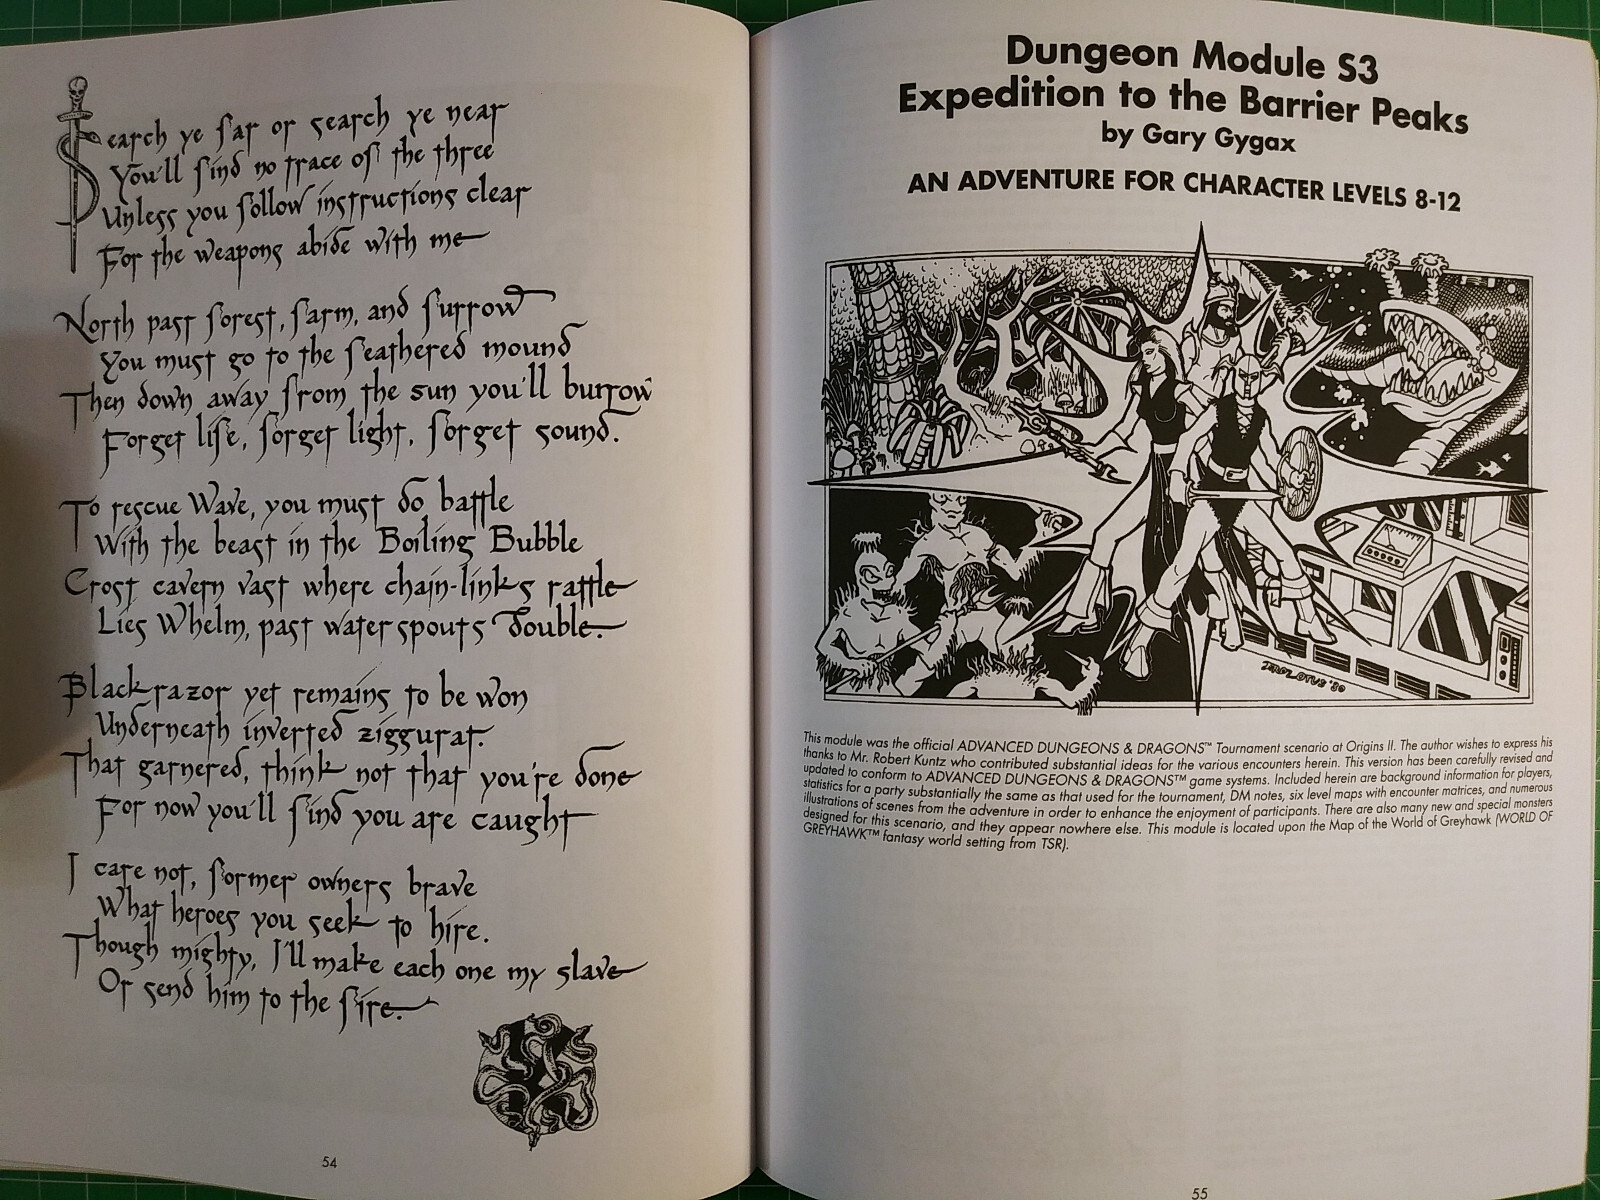 Search ye far or search ye near
You'll find no trace of the three
Unless you follow instructions clear
For the weapons abide with me
North past forest, farm, and furrow
You must go to the feathered mound
Then down away from the sun you'll burrow
Forget life, forget light, forget sound.
To rescue Wave, you must do battle
With the beast in the Boiling Bubble
Crost cavern vast where chain-links rattle
Lies Whelm, past waterspouts double.
Blackrazor yet remains to be won
Underneath inverted ziggurat.
That garnered, think not that you're done
For now you'll find you are caught
I care not, former owners brave
What heroes you seek to hire.
Though mighty, I'll make each one my slave
Or send him to the fire.
54
Dungeon Module S3
Expedition to the Barrier Peaks
by Gary Gygax
AN ADVENTURE FOR CHARACTER LEVELS 8-12
EROL OTUS '80
This module was the official ADVANCED DUNGEONS & DRAGONS™ Tournament scenario at Origins II. The author wishes to express his
thanks to Mr. Robert Kuntz who contributed substantial ideas for the various encounters herein. This version has been carefully revised and
updated to conform to ADVANCED DUNGEONS & DRAGONS™ game systems. Included herein are background information for players,
statistics for a party substantially the same as that used for the tournament, DM notes, six level maps with encounter matrices, and numerous
illustrations of scenes from the adventure in order to enhance the enjoyment of participants. There are also many new and special monsters
designed for this scenario, and they appear nowhere else. This module is located upon the Map of the World of Greyhawk (WORLD OF
GREYHAWK™ fantasy world setting from TSR).
55